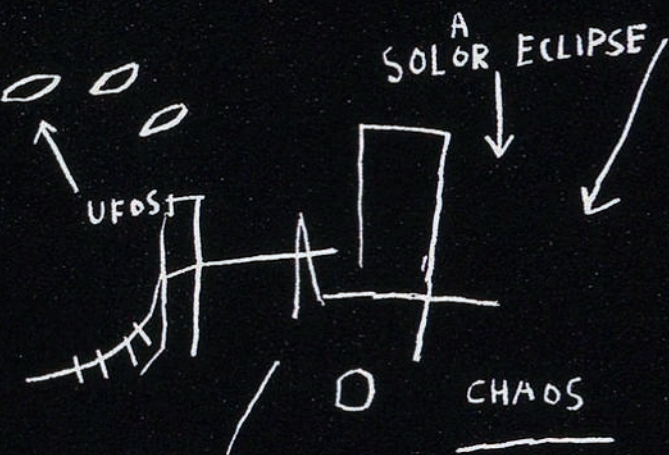 A
SOLOR ECLIPSE
UFOS
CHAOS